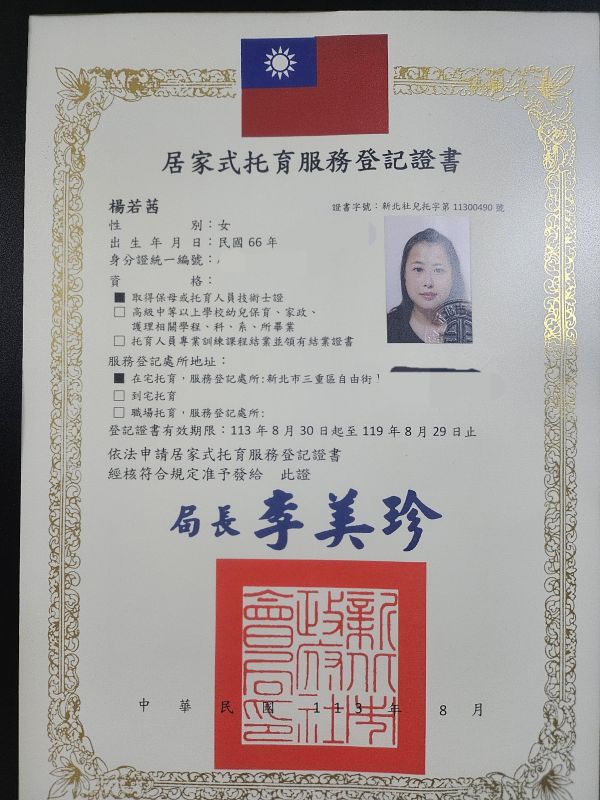 居家式托育服務登記證書
楊若茜
證書字號：新北社兒托字第 11300490 號
性別：女
出生年月日：民國 66 年
身分證統一編號：
資格：
■ 取得保母或托育人員技術士證
□ 高級中等以上學校幼兒保育、家政、
護理相關學程、科、系、所畢業
□ 托育人員專業訓練課程結業並領有結業證書
服務登記處所地址：
■ 在宅托育，服務登記處所:新北市三重區自由街
□ 到宅托育
□ 職場托育，服務登記處所:
登記證書有效期限：113 年 8 月 30 日起至 119 年 8 月 29 日止
依法申請居家式托育服務登記證書
經核符合規定准予發給 此證
局長 李美珍
新北市
政府社
會局印
中華民國 113 年 8 月